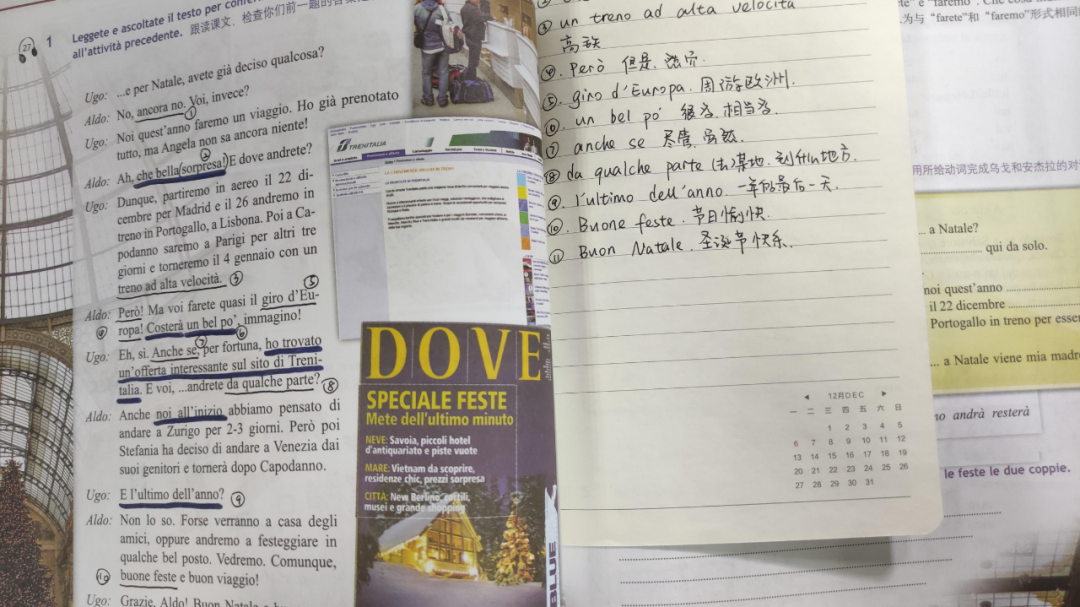 27
1
Leggete e ascoltate il testo per
all'attività precedente. 跟读课文，检查你们前一题的
Ugo: ...e per Natale, avete già deciso qualcosa?
Aldo: No, ancora no. Voi, invece?
①
Ugo: Noi quest'anno faremo un viaggio. Ho già prenotato
tutto, ma Angela non sa ancora niente!
②
Aldo: Ah, che bella sorpresa! E dove andrete?
Ugo: Dunque, partiremo in aereo il 22 di-
cembre per Madrid e il 26 andremo in
treno in Portogallo, a Lisbona. Poi a Ca-
podanno saremo a Parigi per altri tre
giorni e torneremo il 4 gennaio con un
treno ad alta velocità. ③
⑤
Aldo: Però! Ma voi farete quasi il giro d'Eu-
④ ropa! Costerà un bel po', immagino!
⑦ ⑥
Ugo: Eh, sì. Anche se, per fortuna, ho trovato
un'offerta interessante sul sito di Treni-
talia. E voi, ...andrete da qualche parte? ⑧
Aldo: Anche noi all'inizio abbiamo pensato di
andare a Zurigo per 2-3 giorni. Però poi
Stefania ha deciso di andare a Venezia dai
suoi genitori e tornerà dopo Capodanno.
Ugo: E l'ultimo dell'anno? ⑨
Aldo: Non lo so. Forse verranno a casa degli
amici, oppure andremo a festeggiare in
qualche bel posto. Vedremo. Comunque,
⑩ buone feste e buon viaggio!
Ugo: Grazie, Aldo! Buon Natale
TRENITALIA
DOVE
SPECIALE FESTE
Mete dell'ultimo minuto
NEVE: Savoia, piccoli hotel
d'antiquariato e piste vuote
MARE: Vietnam da scoprire,
residenze chic, prezzi sorpresa
CITTÀ: New Berlino, cortili,
musei e grande shopping
BLUE
③ un treno ad alta velocità
高铁
④. Però 但是.
⑤. giro d'Europa. 周游欧洲.
⑥ un bel po' 很多, 相当多.
⑦ anche se 尽管, 虽然.
⑧ da qualche parte (去)某地. 到什么地方.
⑨. l'ultimo dell'anno. 一年的最后一天.
⑩. Buone feste. 节日愉快.
⑪ Buon Natale. 圣诞节快乐.
◀ 12月DEC ▶
一 二 三 四 五 六 日
1 2 3 4 5
6 7 8 9 10 11 12
13 14 15 16 17 18 19
20 21 22 23 24 25 26
27 28 29 30 31
e "faremo". Che cosa
为与 "farete"和 "faremo"形式相同
用所给动词完成乌戈和安杰拉的对
... a Natale?
qui da solo.
noi quest'anno
il 22 dicembre
Portogallo in treno per esser
... a Natale viene mia madr
no andrà resterà
le feste le due coppie.